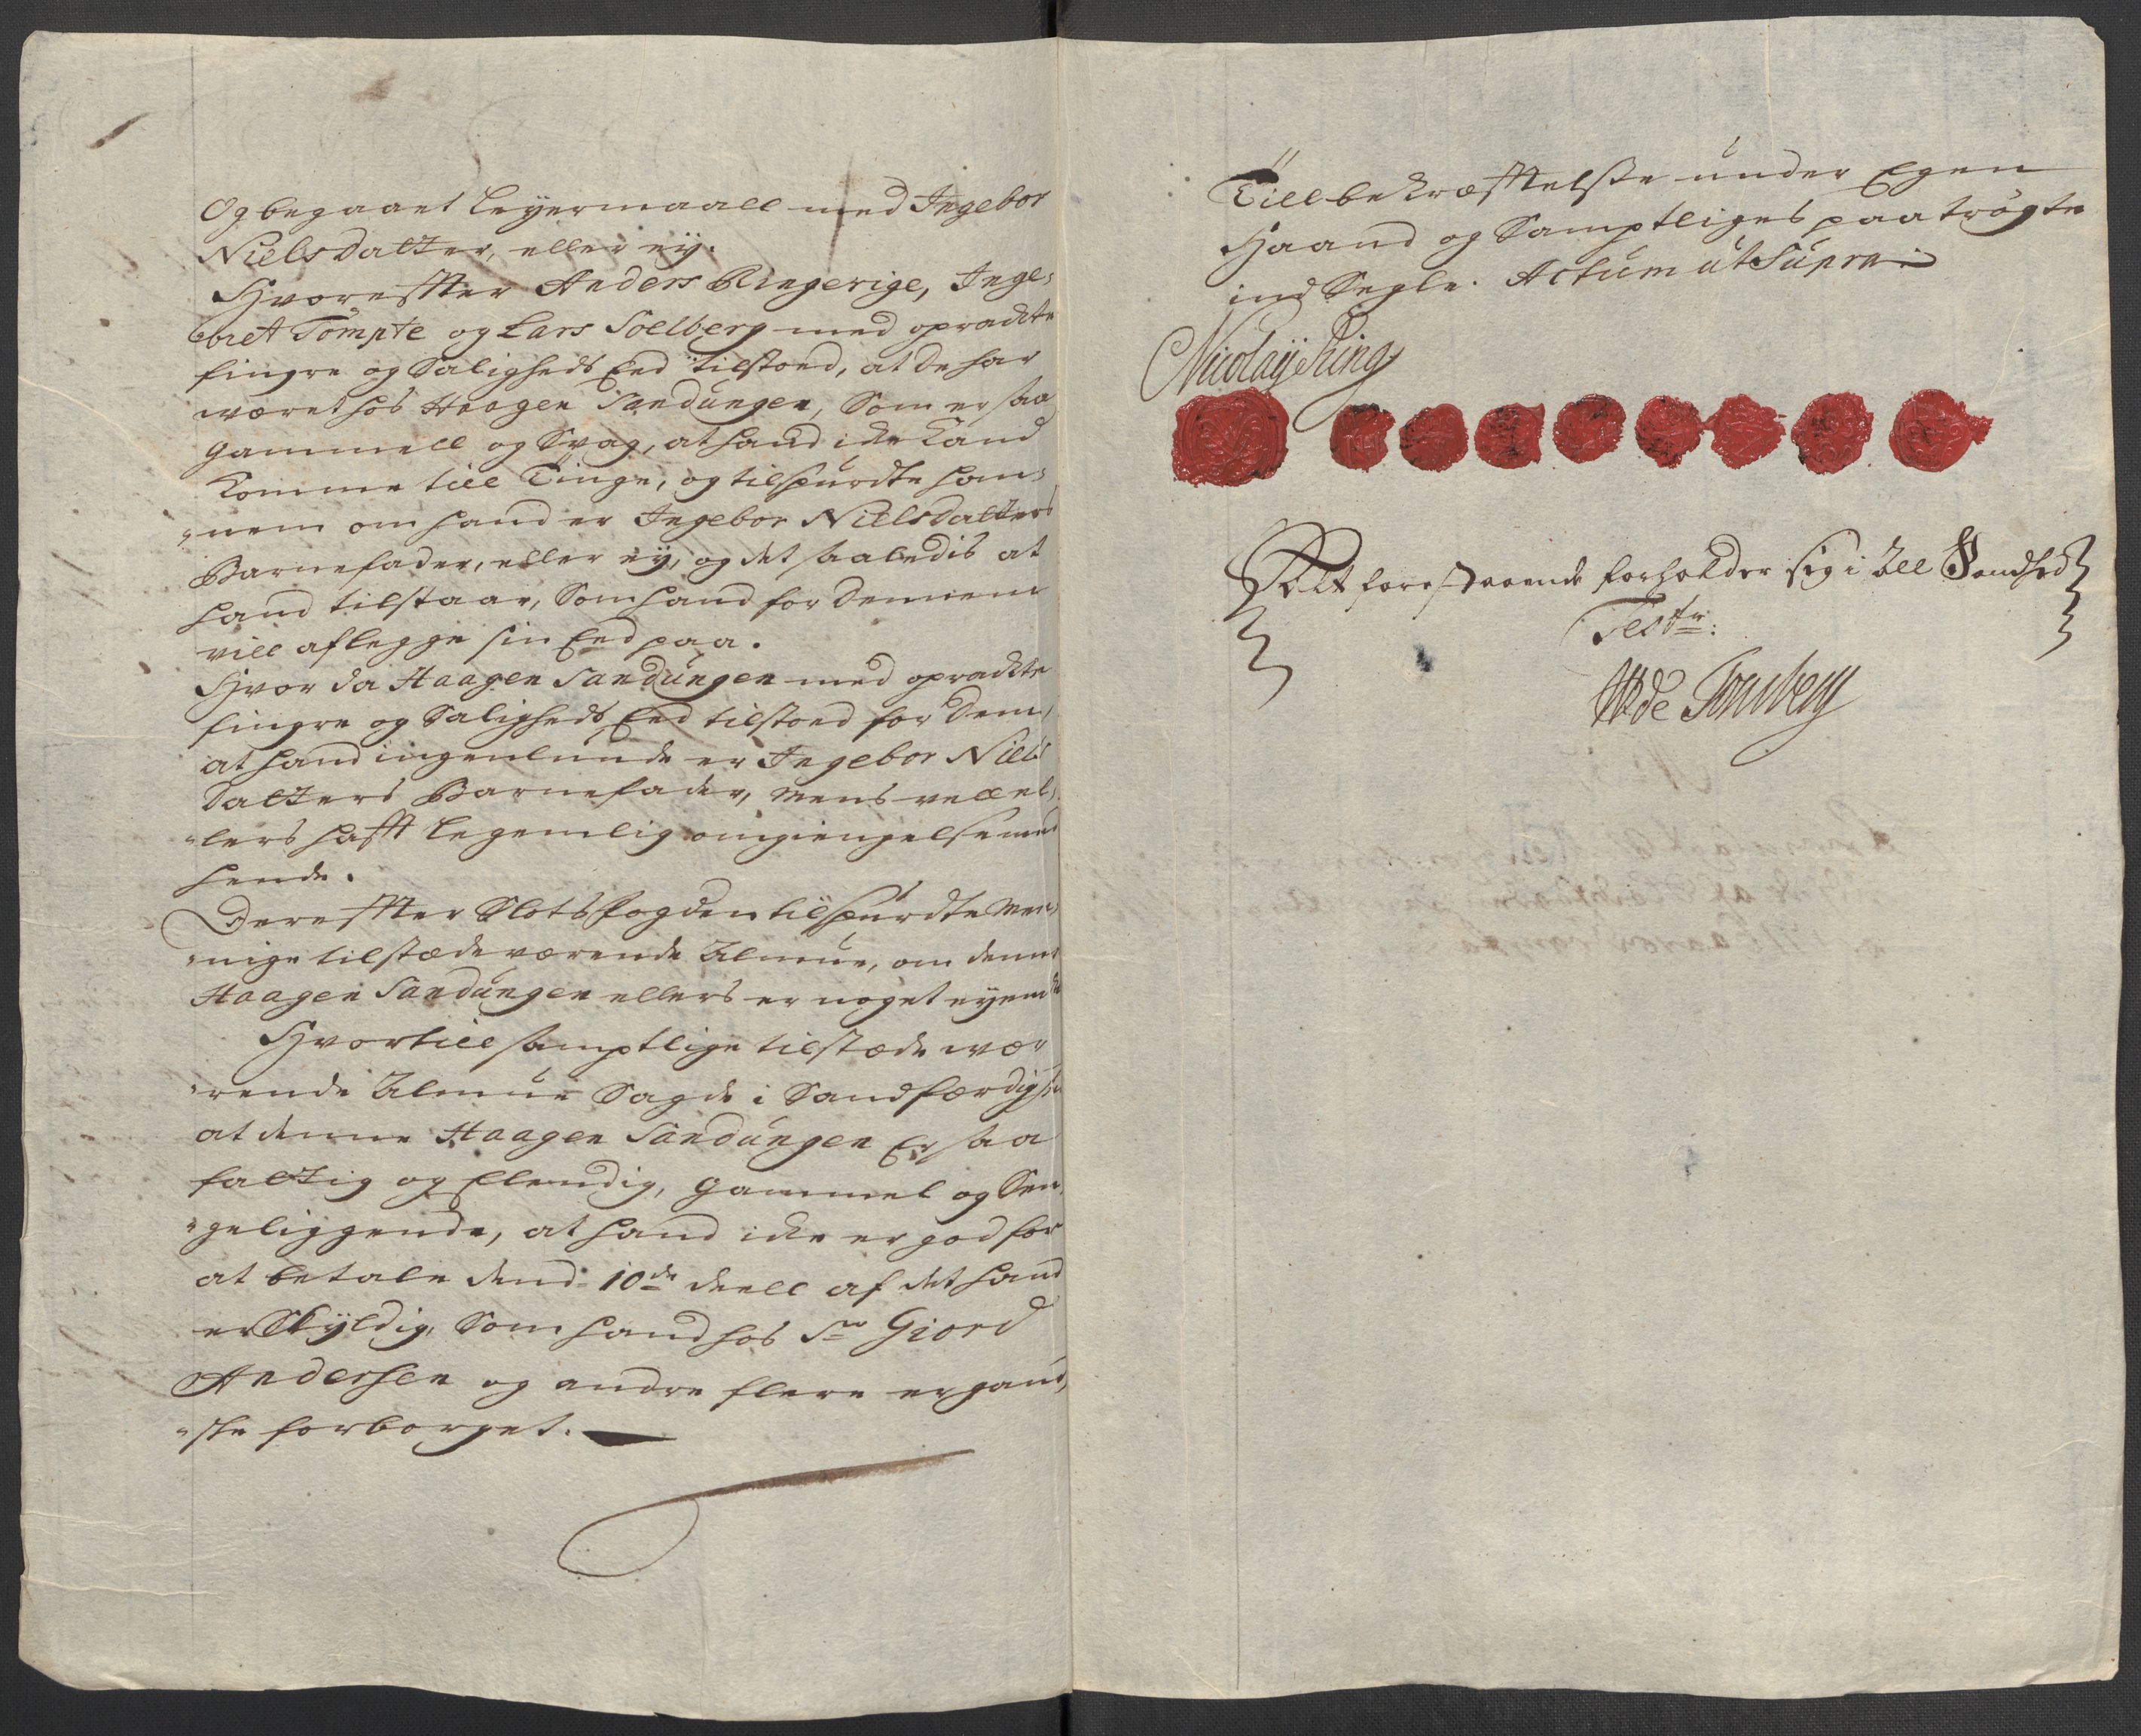 Og begaaet Leyermaall med Ingebor
Nielsdatter, eller ey.
Hvoreffter Anders Ringerige, Inge-
bret Tømpte og Lars Soelberg med opracte
fingre og Saligheds Eed tilstoed, at de har
wæret hos Haagen Sandungen, Som er saa
gammell og Svag, at hand icke kand
komme till Tinge, og tilspurdte han-
nem om hand er Ingebor Nielsdatters
Barnefader, eller ey, og det saaledis at
hand tilstaar, Som hand for dennem
vill aflegge sin Eed paa.
Hvor da Haagen Sandungen med opracte
fingre og Saligheds Eed tilstoed for dem,
at hand ingenlunde er Ingebor Niels
datters Barnefader, mens vell el-
lers hafft legemlig omgiengelse med
hende.
Dereffter Slotsfogden tilspurdte Men-
nige tilstædeværende Almue, om denne
Haagen Sandungen ellers er noget eyende
Hvortill samptlige tilstæde wæ-
rende Almue Sagde i Sandfærdighed
at denne Haagen Sandungen Er saa
fattig og Elendig, gammel og Sen-
geliggende, at hand icke er god for
at betale dend 10de deell af det hand
er Skyldig, Som hand hos Sr Giord
Andersen og andre flere er gand-
ske forborget.
Till bekræfftelsse under Egen
Haand og Samptliges paatrøgte
ind Segle. Actum ut Supra
Nicolaij Ring
At forestaaende forholder sig i all Sandhed
Test:
WdeTonsberg